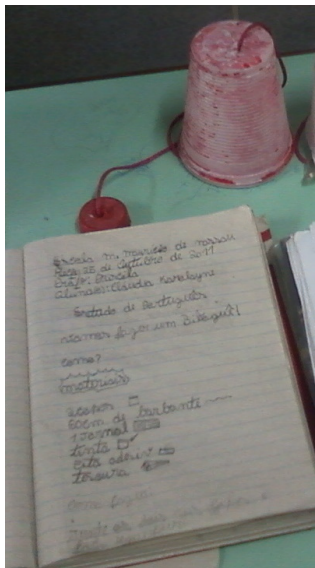 Escola M. Maurício de Nassau
Recife 25 de Outubro de 2017
Profe: Priscila
Aluna: Claudia Karolayne
Estudo de Português
vamos fazer um bilboquê!
como?
materiais
2 copos
60cm de barbante
1 jornal
tinta
fita adesiva
tesoura
como fazer: